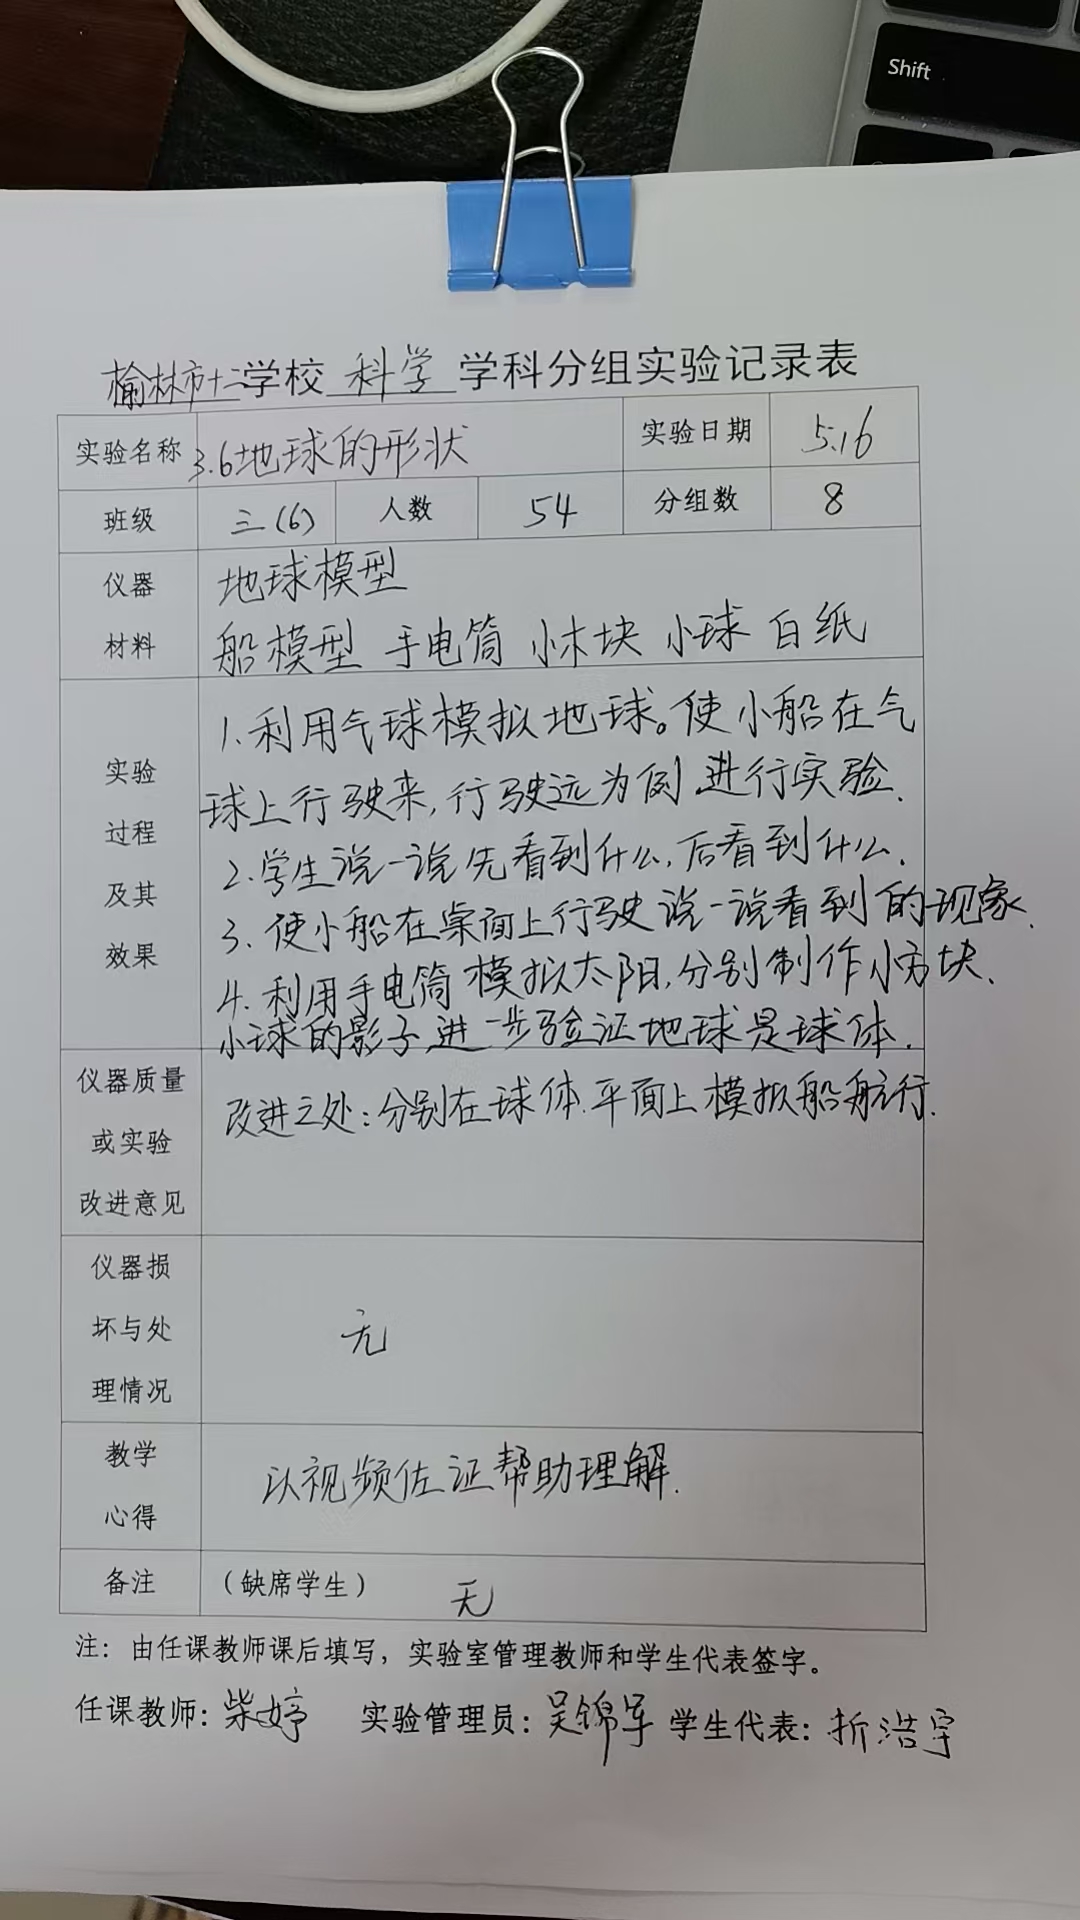 Shift
榆林市十二学校 科学 学科分组实验记录表
实验名称 3.6地球的形状 实验日期 5.16
班级 三(6) 人数 54 分组数 8
仪器 地球模型
材料 船模型 手电筒 小木块 小球 白纸
1.利用气球模拟地球。使小船在气
实验
球上行驶来,行驶远为例.进行实验.
过程
2.学生说一说先看到什么,后看到什么.
及其
3.使小船在桌面上行驶说一说看到的现象.
效果
4.利用手电筒模拟太阳,分别制作小方块.
小球的影子进一步验证地球是球体.
仪器质量
改进之处:分别在球体.平面上模拟船航行.
或实验
改进意见
仪器损
坏与处 无
理情况
教学
以视频佐证帮助理解.
心得
备注 (缺席学生) 无
注:由任课教师课后填写,实验室管理教师和学生代表签字。
任课教师:柴婷 实验管理员:吴锦军 学生代表:折浩宇